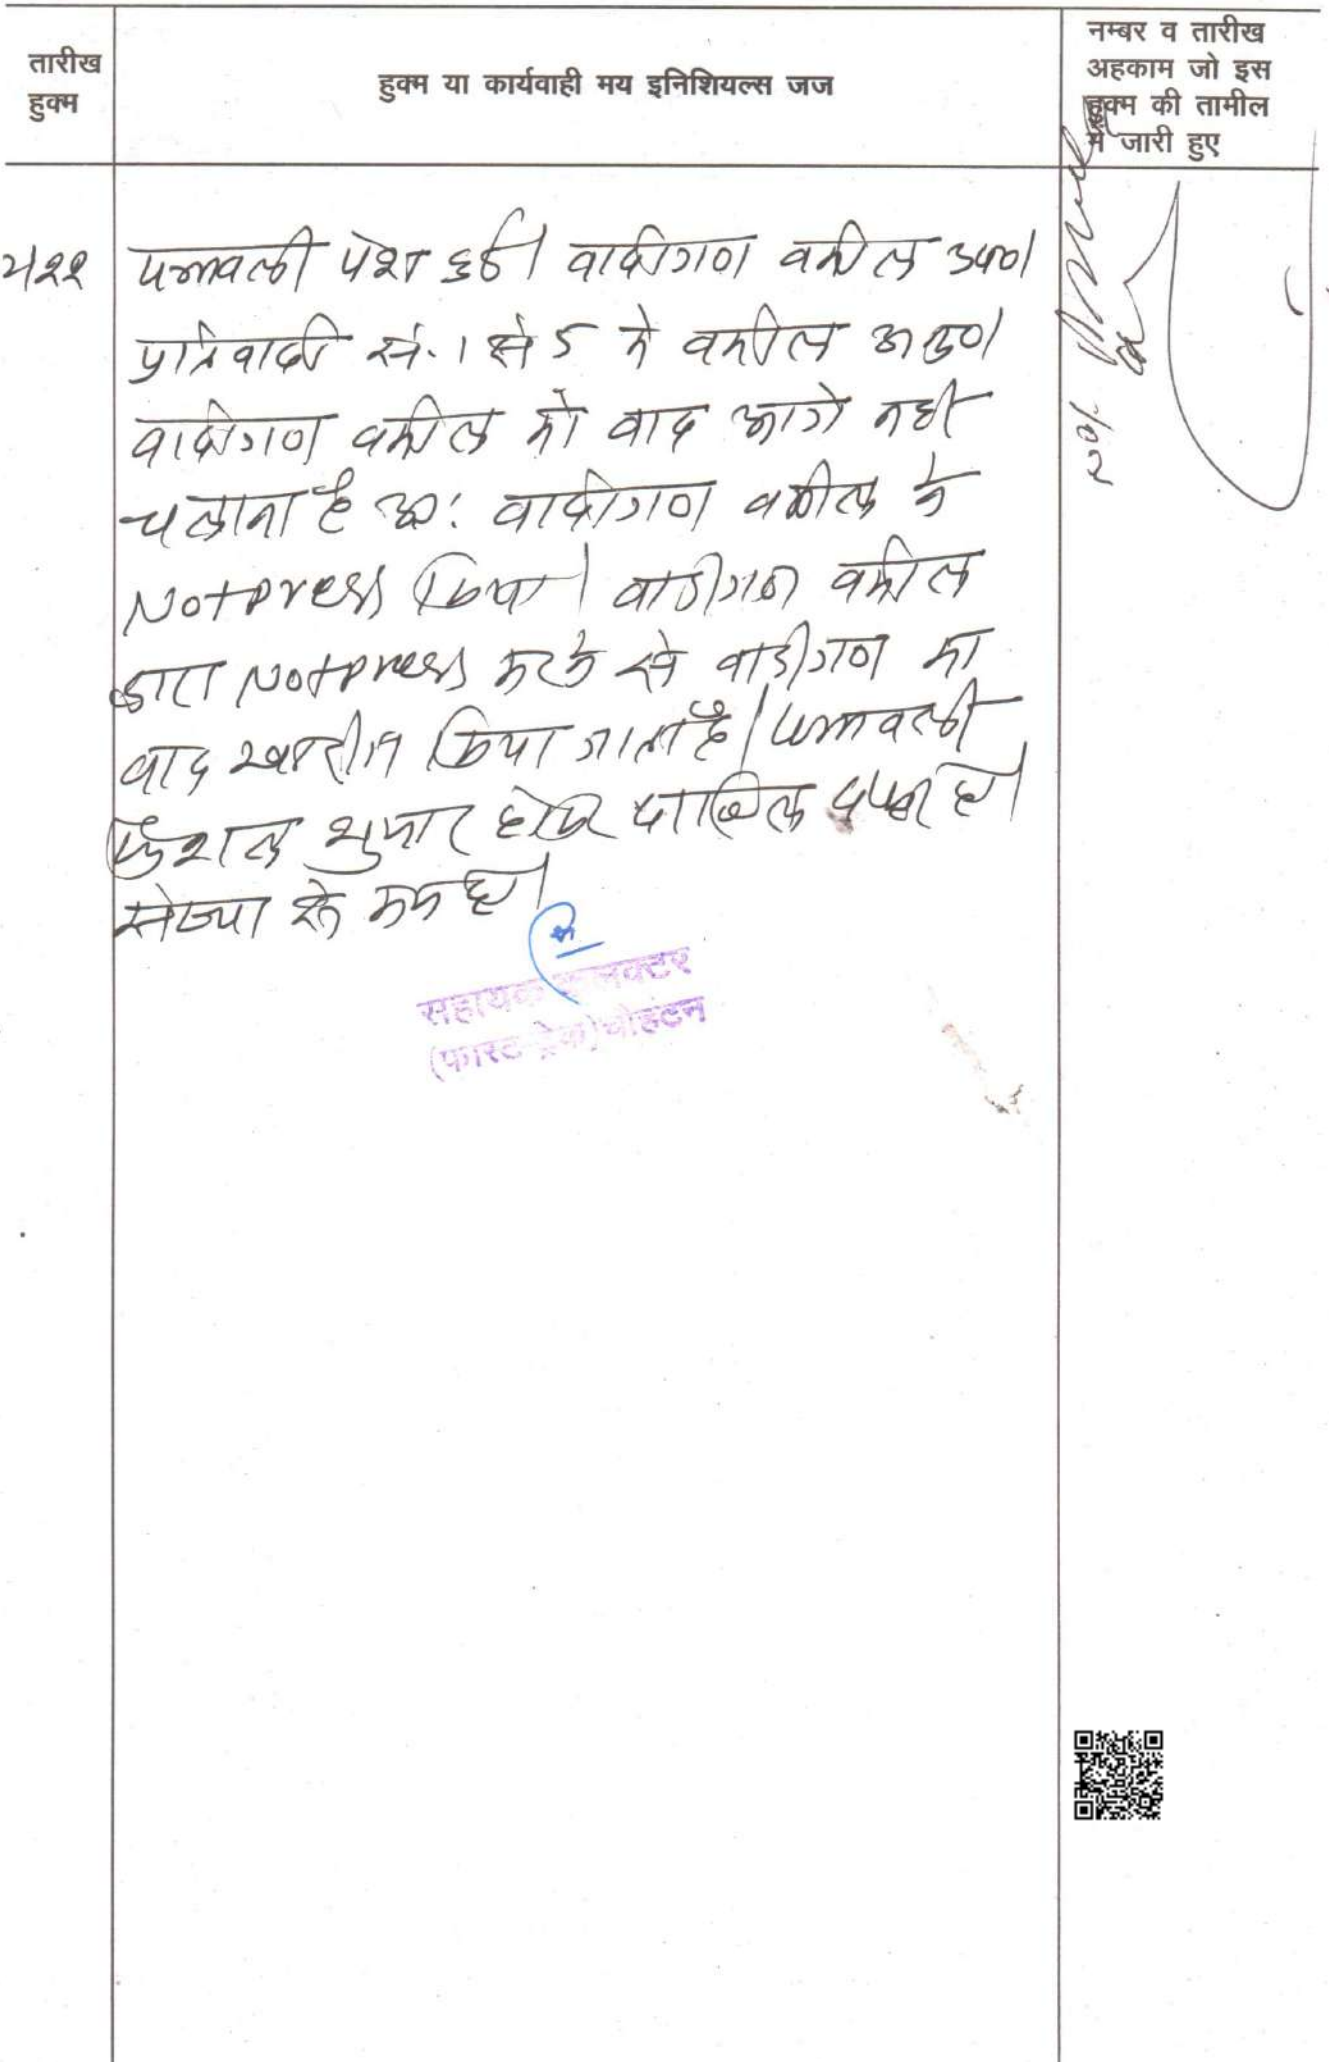 तारीख
हुक्म
हुक्म या कार्यवाही मय इनिशियल्स जज
नम्बर व तारीख
अहकाम जो इस
हुक्म की तामील
में जारी हुए
पत्रावली पेश हुई। वादीगण वकील उप०।
प्रतिवादी सं. 1 से 5 के वकील अनु०।
वादीगण वकील को वाद आगे नही
चलाना है अतः वादीगण वकील ने
Notpress किया। वादीगण वकील
द्वारा Notpress करने से वादीगण का
वाद खारीज किया जाता है। पत्रावली
फैशल शुमार होकर दाखिल दफ्तर हो।
संख्या से कम हो।
सहायक कलक्टर
(फास्ट ट्रेक) चौहटन